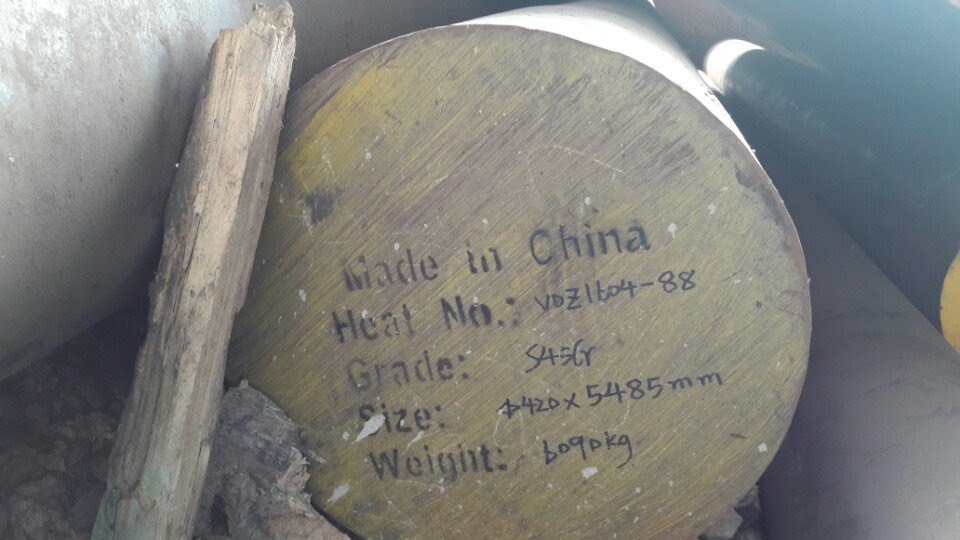 Made in China
Heat No.: VDZ1604-88
Grade: S45Cr
Size: Φ420 x 5485mm
Weight: 6090kg